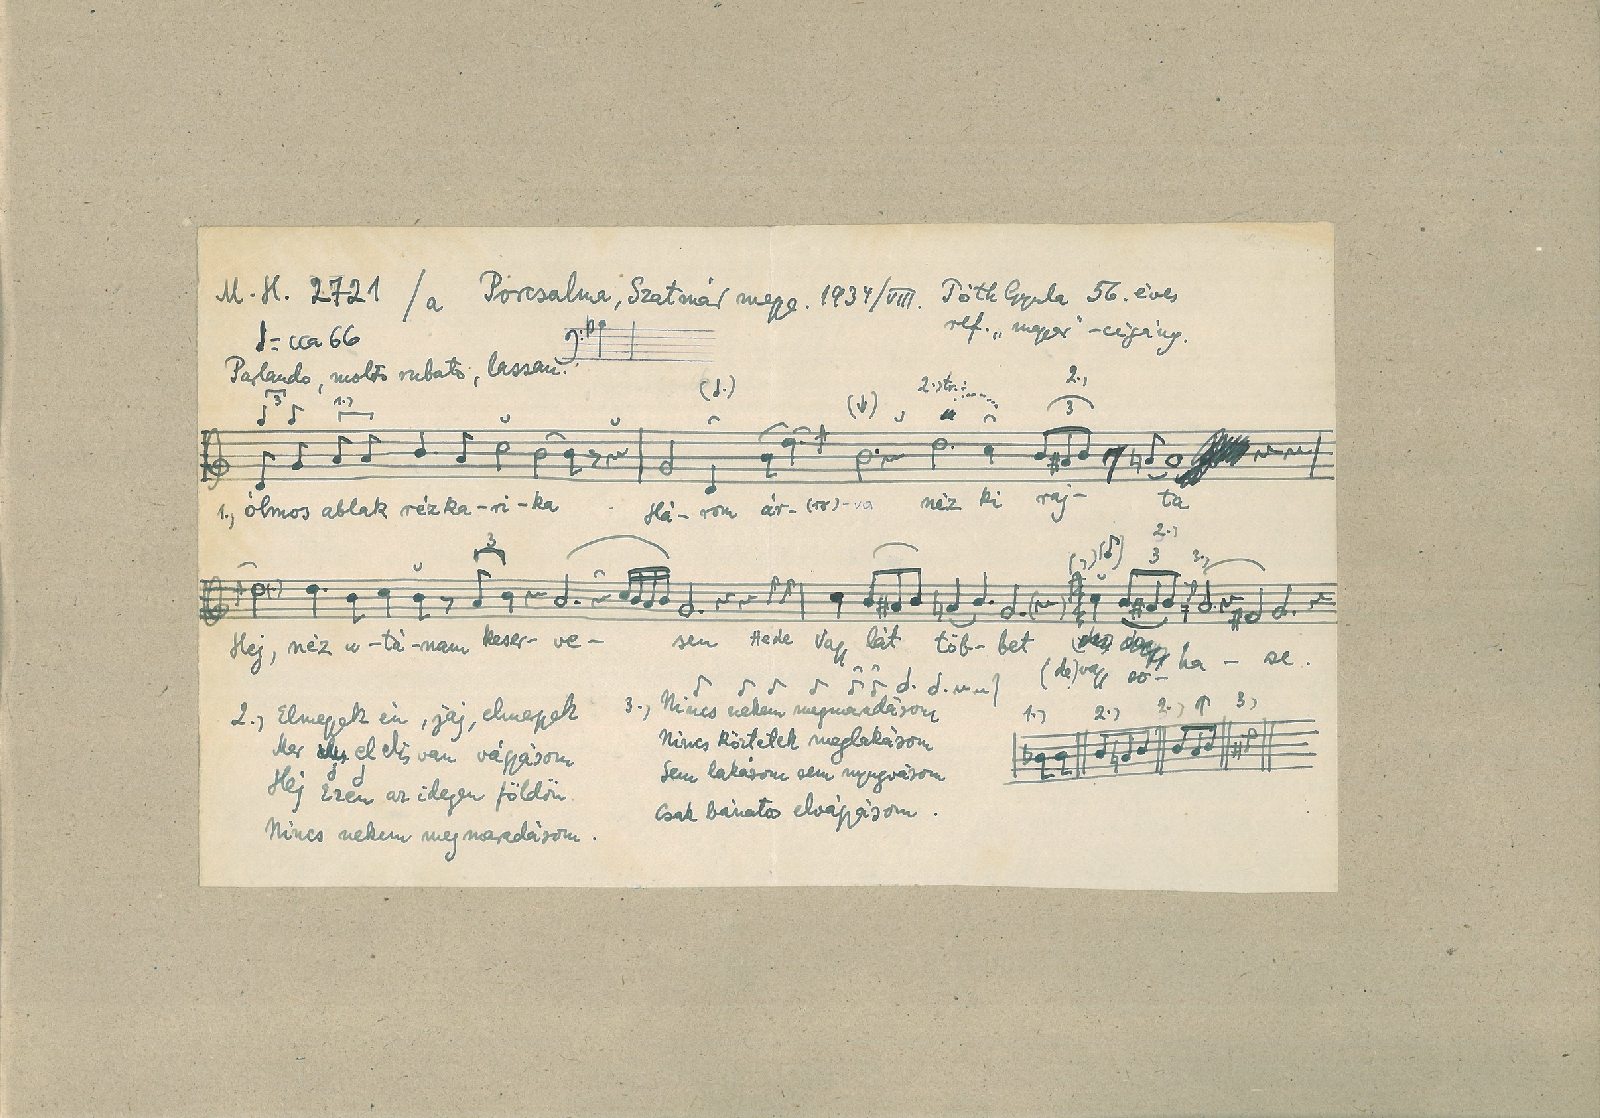 M.H. 2721/a Porcsalma, Szatmár megye. 1934/VIII. Tóth Gyula 56. éves
ref. „magyar"-cigány.
♩= cca 66
Parlando, molto rubato, lassan.
3 1., (♩.) 2., tr. 2., 3
1., ólmos ablak rézka-ri-ka Há-rom ár-(rr)-va néz ki raj-ta
3 2., 3 3.,
Hej, néz u-tá-nam keser-ve-sen Hede Vagy lát töb-bet
(de)vagy so-ha-se.
2., Elmegyek én, jaj, elmegyek
Mer el is van vágyásom
Hej Ezen az idegen földön
Nincs nekem megmaradásom.
3., Nincs nekem megmaradásom
Nincs köztetek meglakásom
Sem lakásom sem nyugvásom
Csak bánatos elvágyásom.
1., 2., 2., 3,